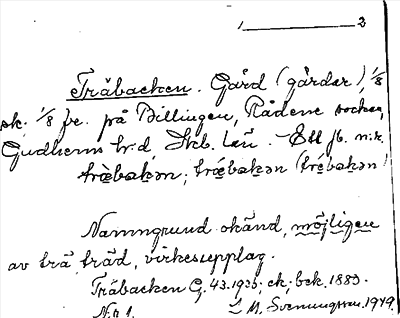 1 2
Träbacken. Gård (gårdar), 1/8
sk. 1/8 fr. på Billingen, Rådene socken,
Gudhems hrd, Skb. län. Ett fb. m.k.
Namngrund okänd, möjligen
av trä, träd, virkesupplag.
Träbacken G. 43.1935; ek; bek. 1883.
L M. Svenungsson 1949.